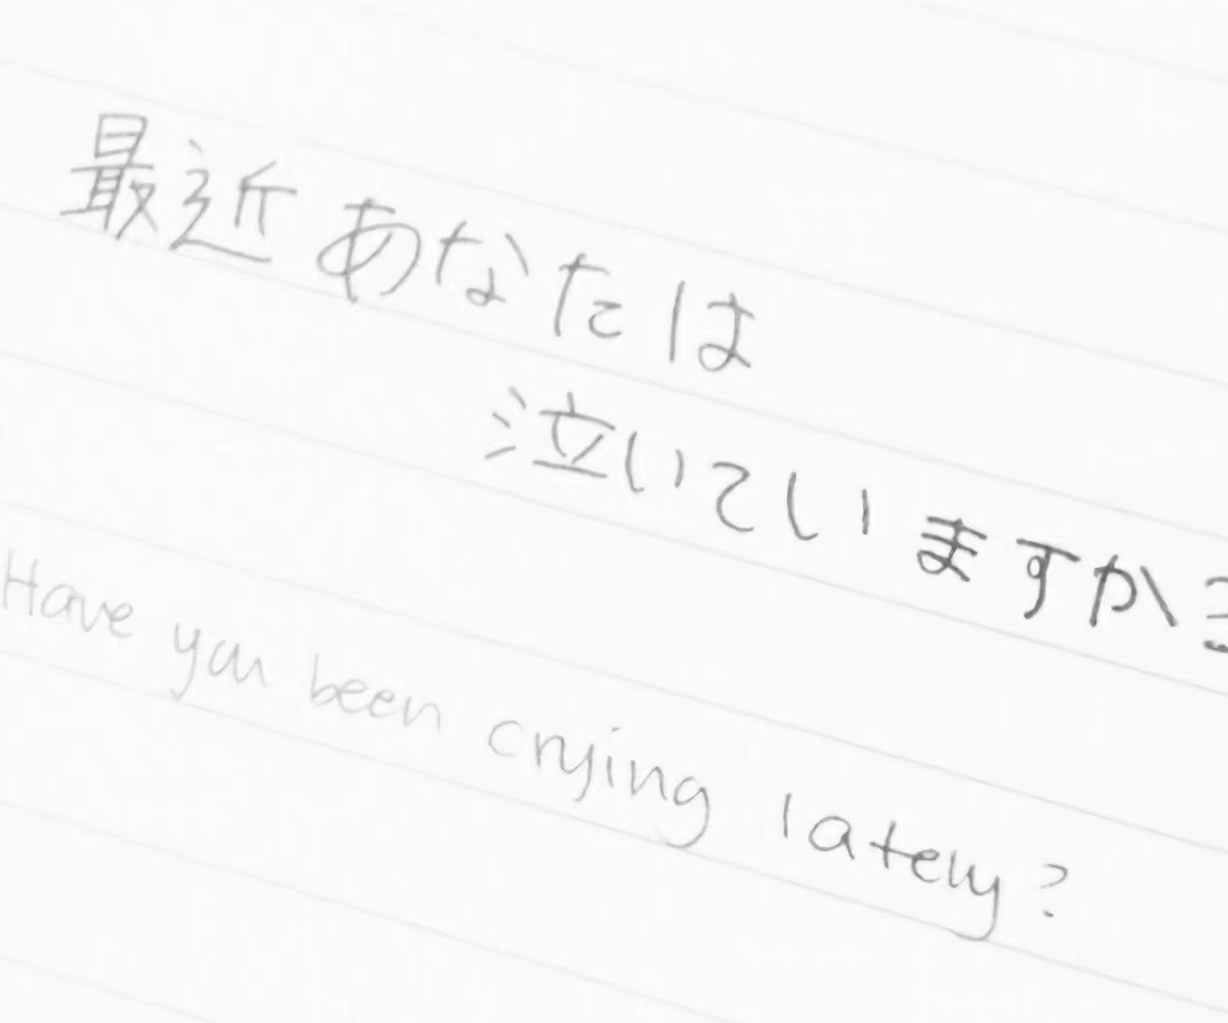 最近あなたは
泣いていますか
Have you been crying lately?